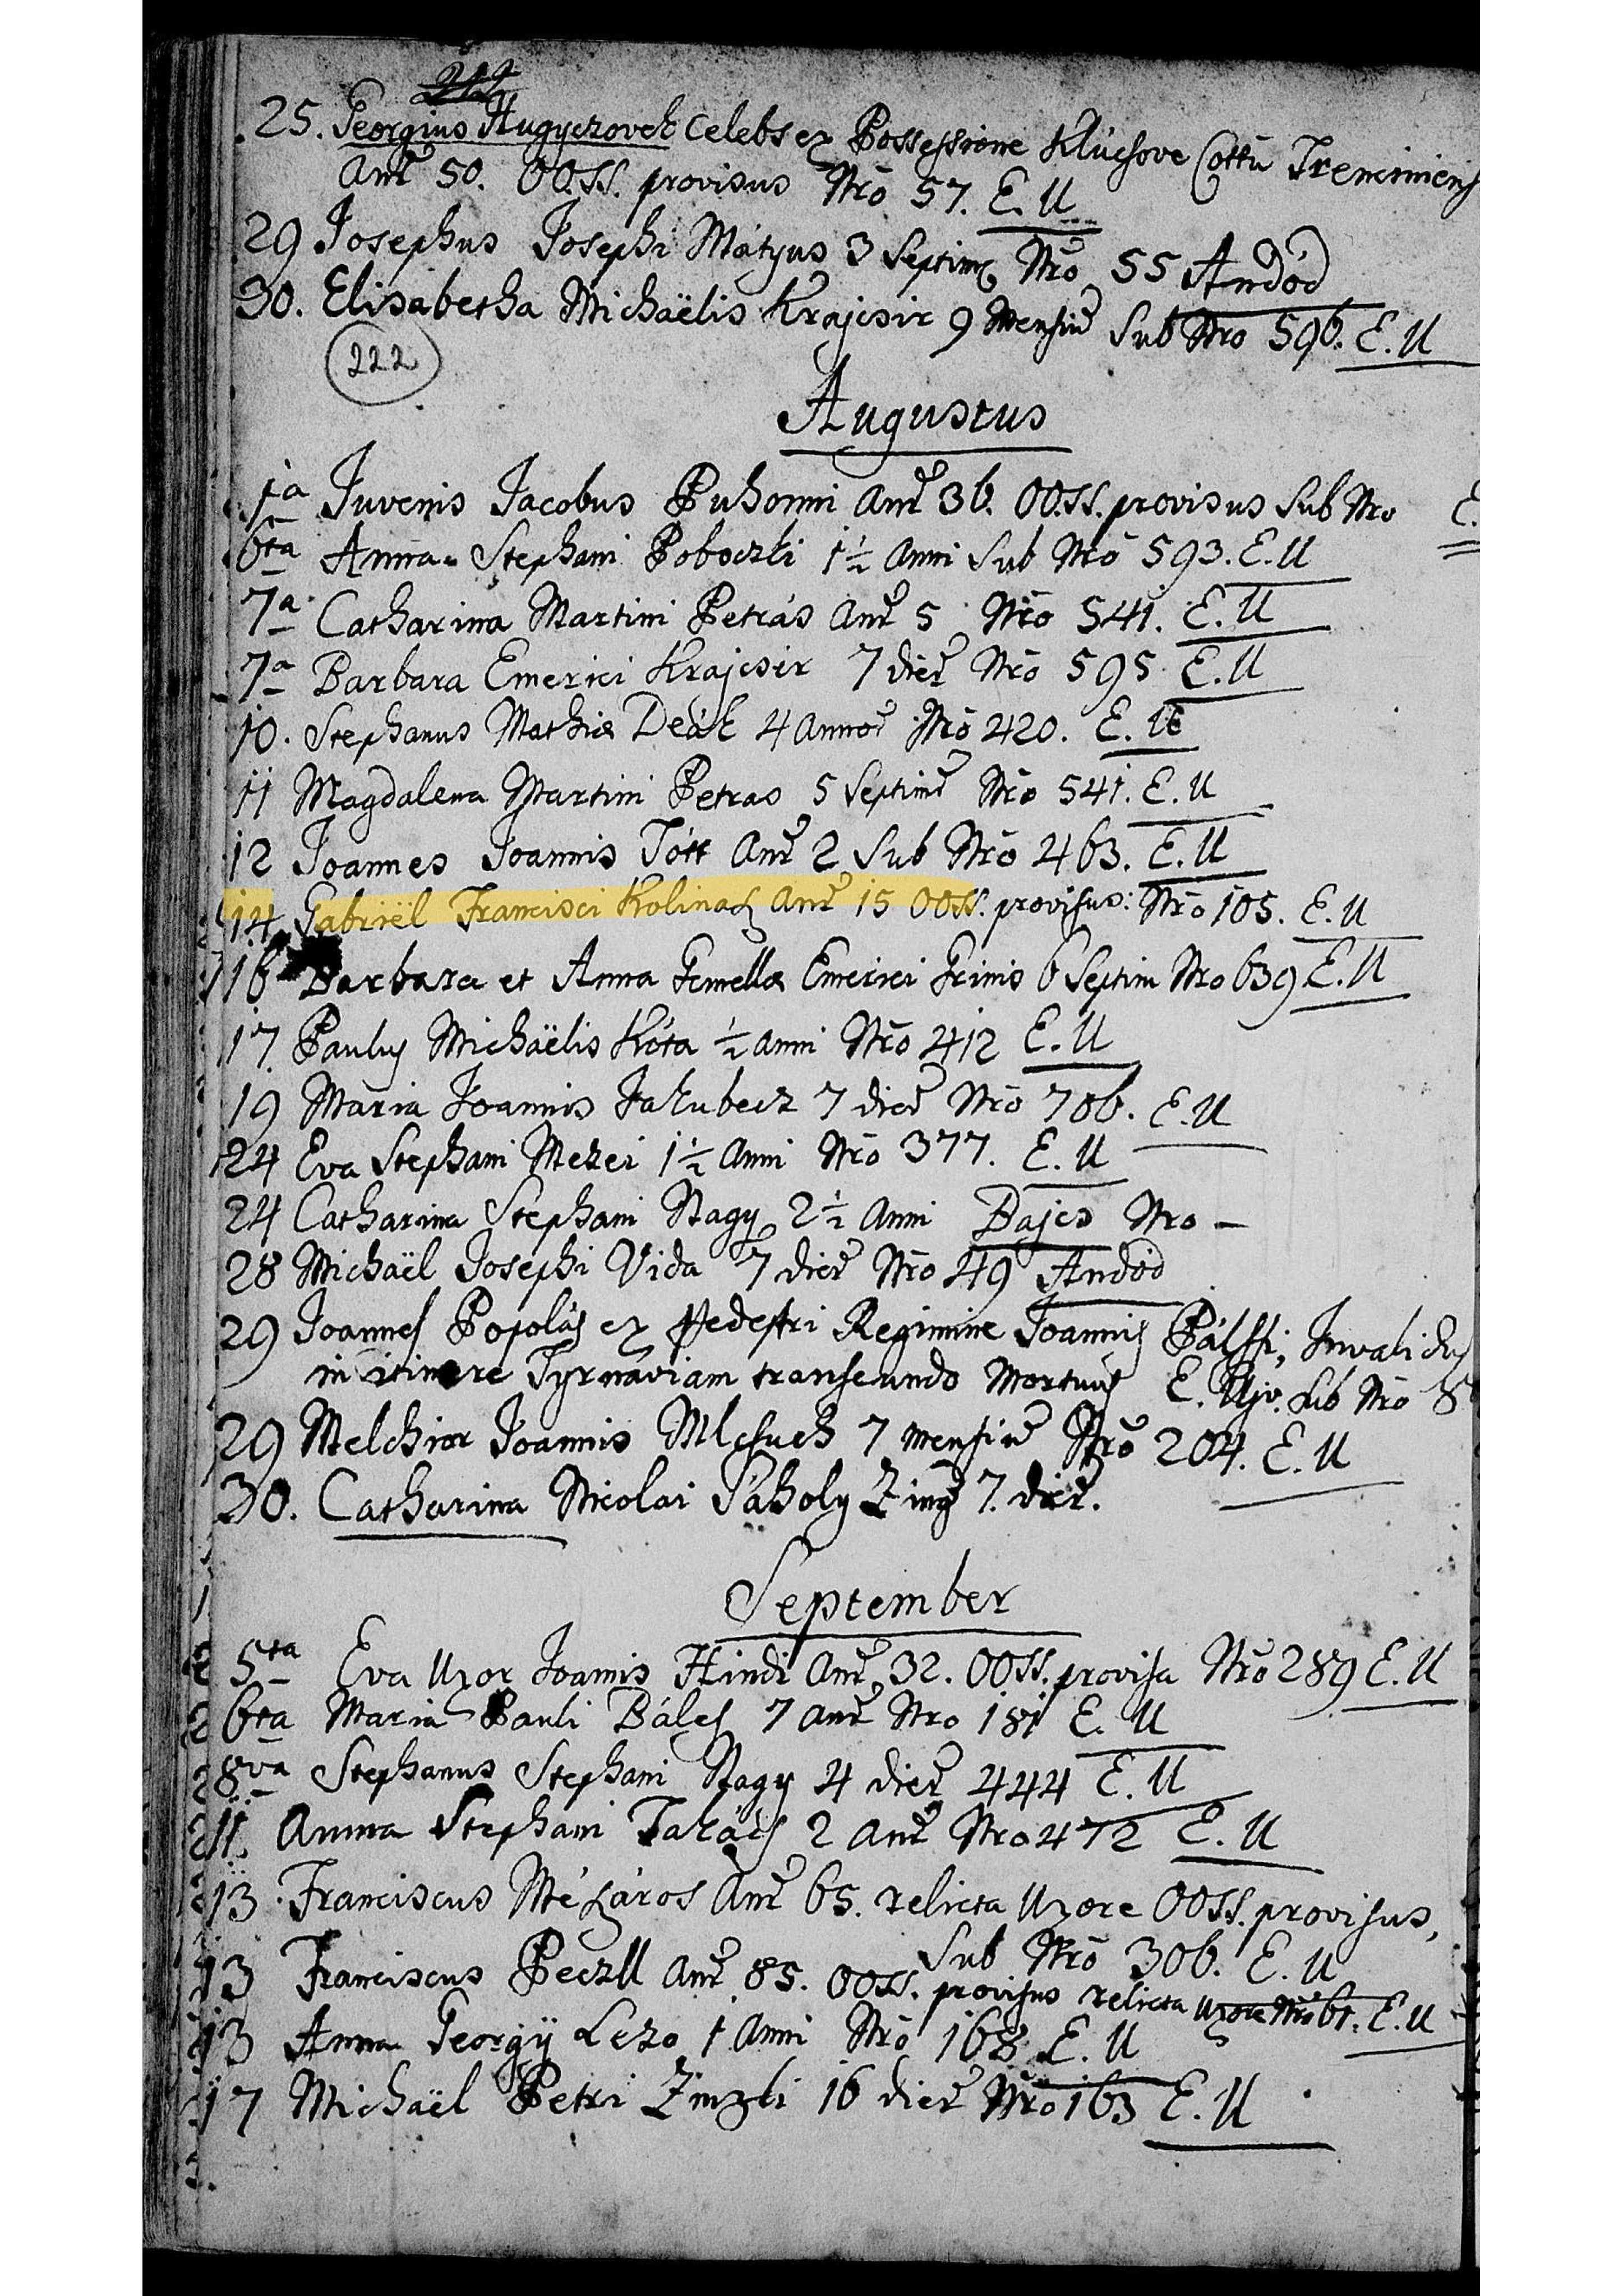 212
25. Georgius Hugyezovek Celebs ex Possessione Klucsove Cottu Trenciniens
Anr 50. OO.SS. provisus Nro 57. E. U
29 Josephus Josephi Mátyus 3 Septim Nro 55 Andód
30. Elisabetha Michaëlis Krajcsir 9 Mensiu Sub Nro 596. E. U
222
Augustus
1a Juvenis Jacobus Puhonni Anr 36. OO.SS. provisus Sub Nro E.
6ta Anna Stephani Poboczki 1½ Anni Sub Nro 593. E. U
7a Catharina Martini Petrás Anr 5 Nro 541. E. U
7a Barbara Emerici Krajcsir 7 dier Nro 595 E. U
10. Stephanus Mathiæ Deák 4 Annor Nro 420. E. U
11 Magdalena Martini Petras 5 Septimr Nro 541. E. U
12 Joannes Joannis Tótt Anr 2 Sub Nro 463. E. U
14 Gabriël Francisci Kolinaz Anr 15 OOSS. provisus: Nro 105. E. U
16 Barbara et Anna Gemellæ Emerici Grinis 6 Septim Nro 639 E. U
17. Paulus Michaëlis Kóta ½ Anni Nro 412 E. U
19 Maria Joannis Jakubecz 7 dier Nro 706. E. U
24 Eva Stephani Mezei 1½ Anni Nro 377. E. U
24 Catharina Stephani Nagy 2½ Anni Bajcs Nro –
28 Michaël Josephi Vida 7 dier Nro 49 Andód
29 Joannes Popolás ex Pedestri Regimine Joannis Pálffi, Invalidus
in itinere Tyrnaviam transeundo Mortuus E. Ujv. Sub Nro 8
29 Melchior Joannis Mlcsuch 7 mensiu Nro 204. E. U
30. Catharina Nicolai Sáholy Zing 7. dier.
September
5ta Eva Uxor Joannis Hindi Anr 32. OOSS. provisa Nro 289 E. U
6ta Maria Pauli Báles 7 Anr Nro 181 E. U
8va Stephanus Stephani Nagy 4 dier 444 E. U
11. Anna Stephani Takács 2 Anr Nro 472 E. U
13 Franciscus Mézáros Anr 65. relicta Uxore OOSS. provisus,
Sub Nro 306. E. U
13 Franciscus Peczll Anr 85. OOSS. provisus relicta Uxore Nro 61. E. U
13 Anna Georgÿ Lezo 1 Anni Nro 168 E. U
17 Michaël Petri Zinzki 16 dier Nro 163 E. U